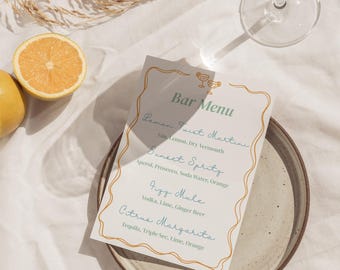 Bar Menu
Lemon Twist Martini
Gin, Lemon, Dry Vermouth
Sunset Spritz
Aperol, Prosecco, Soda Water, Orange
Figgy Mule
Vodka, Lime, Ginger Beer
Citrus Margarita
Tequila, Triple Sec, Lime, Orange